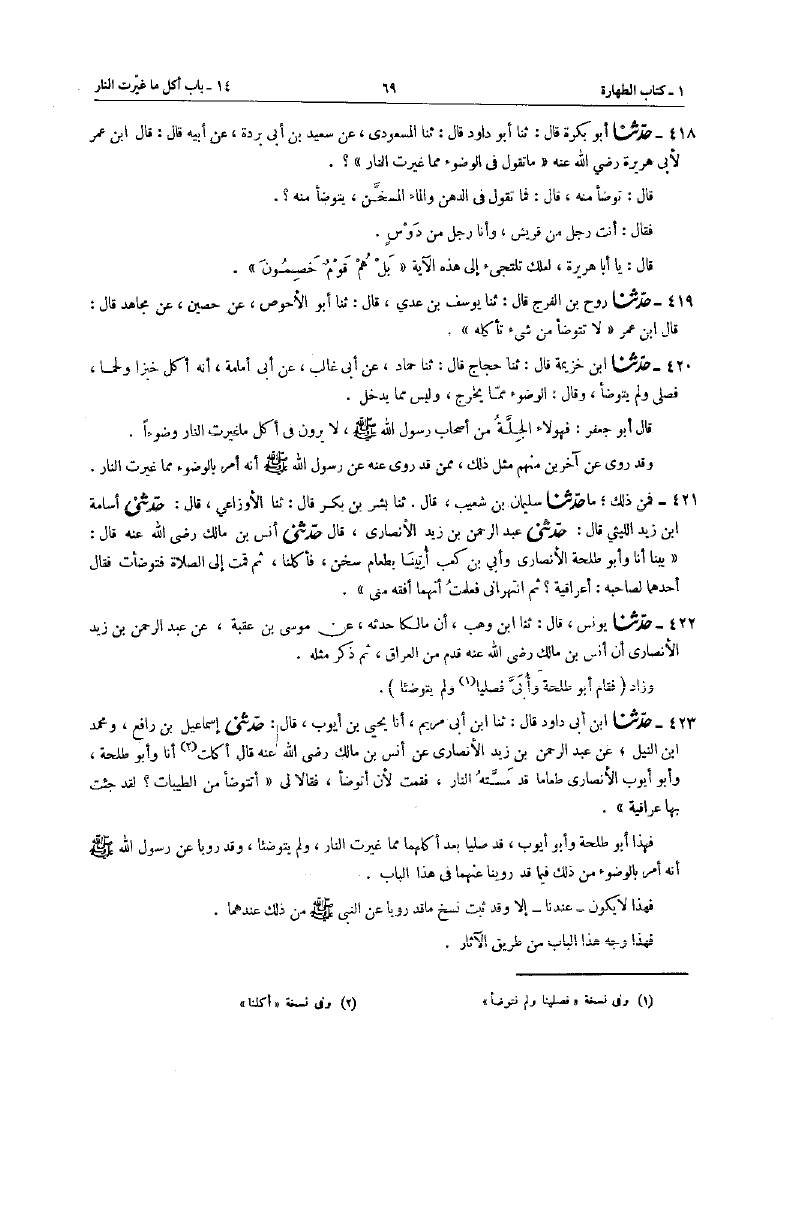 ١ - كتاب الطهارة ٦٩ ١٤ - باب أكل ما غيّرت النار
٤١٨ - حدّثنا أبو بكرة قال : ثنا أبو داود قال : ثنا المسعودى ، عن سعيد بن أبى بردة ، عن أبيه قال : قال ابن عمر
لأبى هريرة رضي الله عنه « ماتقول فى الوضوء مما غيرت النار » ؟ .
قال : توضأ منه ، قال : فما تقول فى الدهن والماء المسخَّن ، يتوضأ منه ؟ .
فقال : أنت رجل من قريش ، وأنا رجل من دَوْسٍ .
قال : يا أبا هريرة ، لعلك تلتجىء إلى هذه الآية « بَلْ هُمْ قَوْمٌ خَصِمُونَ » .
٤١٩ - حدّثنا روح بن الفرج قال : ثنا يوسف بن عدي ، قال : ثنا أبو الأحوص ، عن حصين ، عن مجاهد قال :
قال ابن عمر « لا تتوضأ من شىء تأكله » .
٤٢٠ - حدّثنا ابن خزيمة قال : ثنا حجاج قال : ثنا حماد ، عن أبى غالب ، عن أبى أمامة ، أنه أكل خبزا ولحما ،
فصلى ولم يتوضأ ، وقال : الوضوء ممّا يخرج ، وليس مما يدخل .
قال أبو جعفر : فهولاء الجِلَّةُ من أصحاب رسول الله ﷺ ، لا يرون فى أكل ماغيرت النار وضوءاً .
وقد روى عن آخرين منهم مثل ذلك ، ممن قد روى عنه عن رسول الله ﷺ أنه أمر بالوضوء مما غيرت النار .
٤٢١ - فمن ذلك ؛ ما حدّثنا سليمان بن شعيب ، قال . ثنا بشر بن بكر قال : ثنا الأوزاعي ، قال : حدّثنى أسامة
ابن زيد الليثي قال : حدّثنى عبد الرحمن بن زيد الأنصارى ، قال حدّثنى أنس بن مالك رضى الله عنه قال :
« بينا أنا وأبو طلحة الأنصارى وأبي بن كعب أُتِينَا بطعام سخن ، فأكلنا ، ثم قمت إلى الصلاة فتوضأت فقال
أحدهما لصاحبه : أعراقية ؟ ثم انتهرانى فعلمتُ أنهما أفقه منى » .
٤٢٢ - حدّثنا يونس ، قال : ثنا ابن وهب ، أن مالكا حدثه ، عن موسى بن عقبة ، عن عبد الرحمن بن زيد
الأنصارى أن أنس بن مالك رضى الله عنه قدم من العراق ، ثم ذكر مثله .
وزاد ( فقام أبو طلحة وأُبَىّ فصليا(١) ولم يتوضئا ) .
٤٢٣ - حدّثنا ابن أبى داود قال : ثنا ابن أبى مريم ، أنا يحيى بن أيوب ، قال : حدّثنى إسماعيل بن رافع ، ومحمد
ابن النيل ، عن عبد الرحمن بن زيد الأنصارى عن أنس بن مالك رضى الله عنه قال أكلت(٢) أنا وأبو طلحة ،
وأبو أيوب الأنصارى طعاما قد مَسَّتهُ النار ، فقمت لأن أتوضأ ، فقالا لى « أتتوضأ من الطيبات ؟ لقد جئت
بها عراقية » .
فهذا أبو طلحة وأبو أيوب ، قد صليا بعد أكلهما مما غيرت النار ، ولم يتوضئا ، وقد رويا عن رسول الله ﷺ
أنه أمر بالوضوء من ذلك فيما قد روينا عنهما فى هذا الباب .
فهذا لايكون - عندنا - إلا وقد ثبت نسخ ماقد رويا عن النبى ﷺ من ذلك عندهما .
فهذا وجه هذا الباب من طريق الآثار .
(١) وفى نسخة « فصلينا ولم نتوضأ » (٢) وفى نسخة « أكلنا »